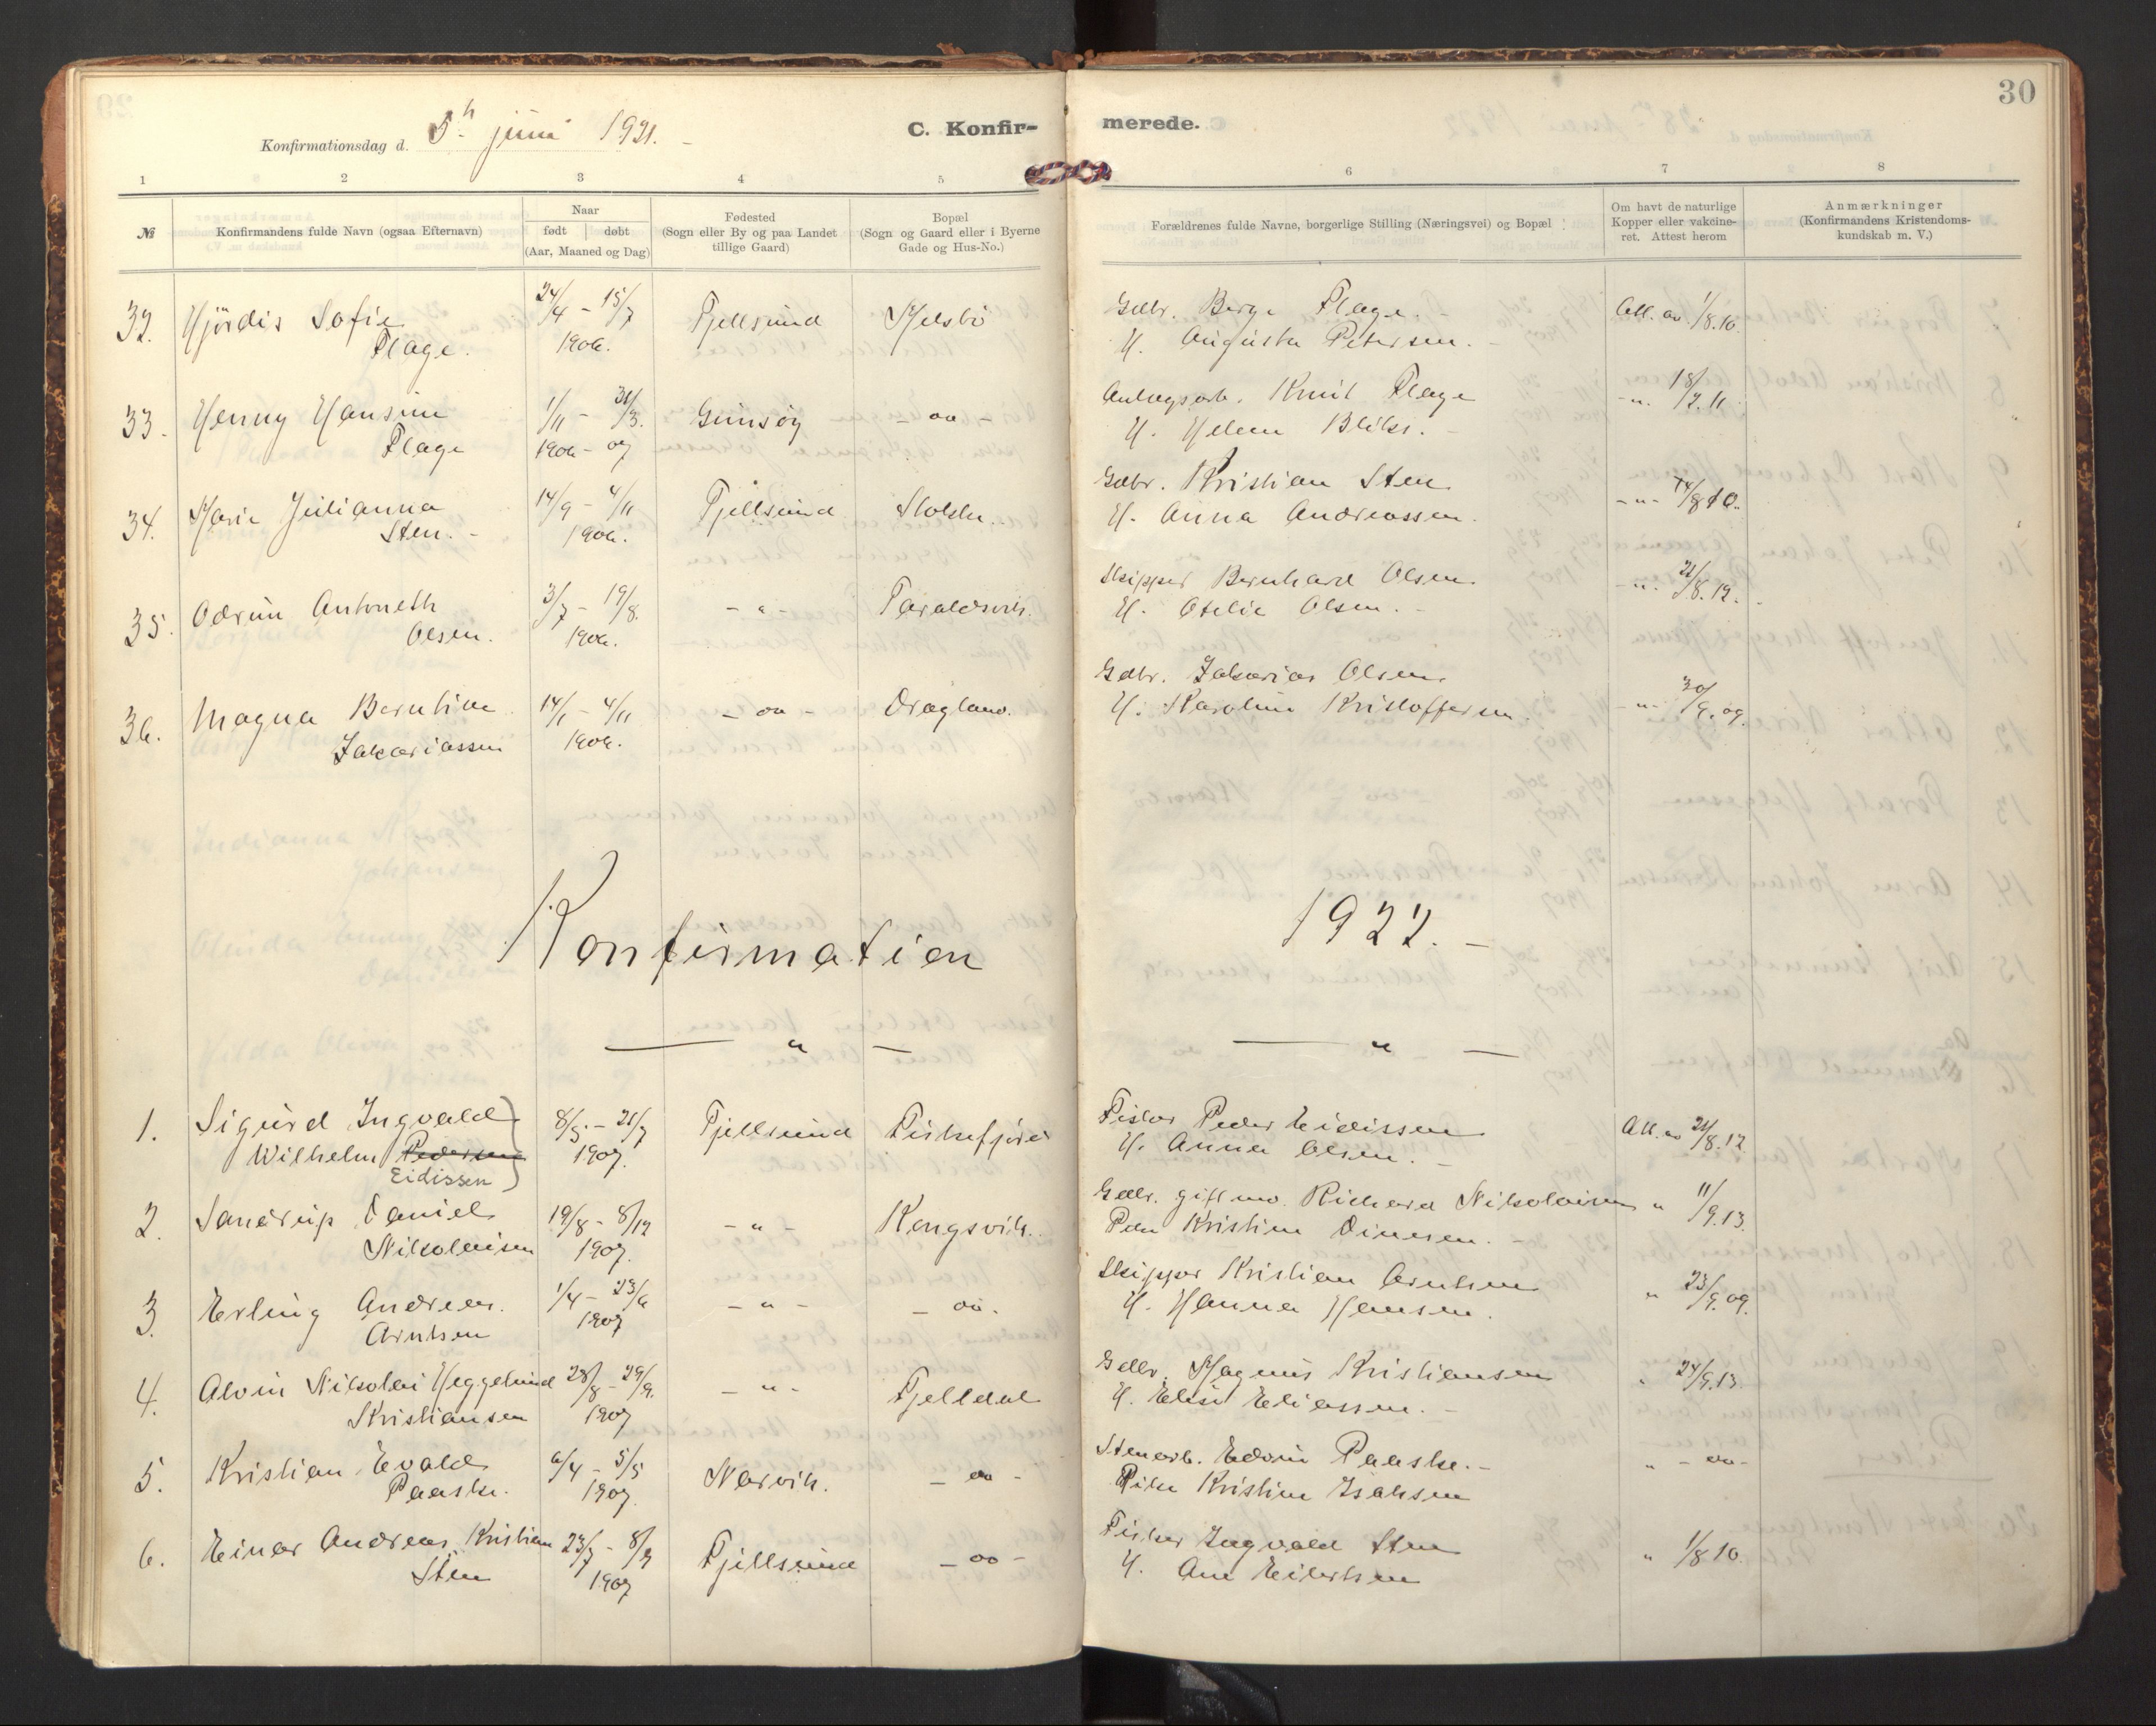 30
Konfirmationsdag d. 5h juni 1921. -
C. Konfir- merede.
1 2 3 4 5 6 7 8
№
Konfirmandens fulde Navn (ogsaa Efternavn)
Naar
født døbt
(Aar, Maaned og Dag)
Fødested
(Sogn eller By og paa Landet
tillige Gaard)
Bopæl
(Sogn og Gaard eller i Byerne
Gade og Hus-No.)
Forældrenes fulde Navne, borgerlige Stilling (Næringsvei) og Bopæl
Om havt de naturlige
Kopper eller vakcine-
ret. Attest herom
Anmærkninger
(Konfirmandens Kristendoms-
kundskab m. V.)
32. Hjördis Sofie 24/4 - 15/7 Fjellsund Gdbr. Berge Flage. Att. av 1/8.10.
Flage. 1906. H. Augusta Petersen. -
33. Henny Hansine 1/11 - 31/3. Gimsöy - oo - Anlægsarb. Knut Flage - " - 18/7.11
Flage 1906 - 07 H. Helene Blik. -
34. Marie Julianna 14/9 - 4/11 Fjellsund Stokke. Gdbr. Kristian Sten - " - 14/8 10.
Sten. - 1906. H. Anna Andreassen.
35. Odrun Antoneth 3/7 - 19/8. - " - Taraldsvik. Skipper Bernhard Olsen. - " - 21/8.12.
Olsen. 1906. H. Otelie Olsen. -
36. Magna Berntine 14/1 - 4/11 - oo - Dragland. Gdbr. Zakarias Olsen. - " - 30/9.09.
Zakariassen 1906. H. Karoline Kristoffersen.
Konfirmation 1922. -
— " — — " —
1. Sigurd Ingvald 8/5. - 21/7 Fjellsund Fiskefjord Fisker Peder Eidissen Att. av 21/8.12
Wilhelm Pedersen 1907. H. Anna Olsen. -
Eidissen
2. Sandrup Daniel 19/8 - 8/12 - " - Kongsvik. Gdbr. gift mo. Richard Nikolaisen " 11/9.13.
Nikolaisen 1907. Kristine Dinesen. -
3. Erling Andreas. 1/4 - 23/6 - " - - oo. Skipper Kristian Arntsen " 23/9.09.
Arntsen 1907 H. Hanna Hansen.
4. Alvin Nikolai Heggelund 28/8 - 29/9. - " - Fjelldal Gdbr. Magnus Kristiansen " 24/9.13.
Kristiansen 1907 H. Elise Eliassen. -
5. Kristian Evald 6/4 - 5/5 Narvik. - oo - Stenarb. Edvin Paaske. - " - oo -
Paaske. 1907. Kristine Isaksen
6. Einar Andreas Kristian 23/7 - 8/9 Fjellsund - oo - Fisker Ingvald Sten " 1/8 10.
Sten 1907 H. Ane Eilertsen